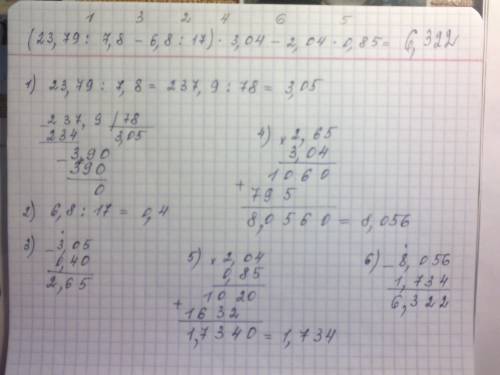 1 3 2 4 6 5
(23,79 : 7,8 - 6,8 : 17) · 3,04 - 2,04 · 0,85 = 6,322
1) 23,79 : 7,8 = 237,9 : 78 = 3,05
237,9 | 78
234 3,05
- 3,90
390
0
2) 6,8 : 17 = 0,4
3) - 3,05
0,40
2,65
4) × 2,65
3,04
1060
+ 795
8,0560 = 8,056
5) × 2,04
0,85
1020
+ 1632
1,7340 = 1,734
6) - 8,056
1,734
6,322